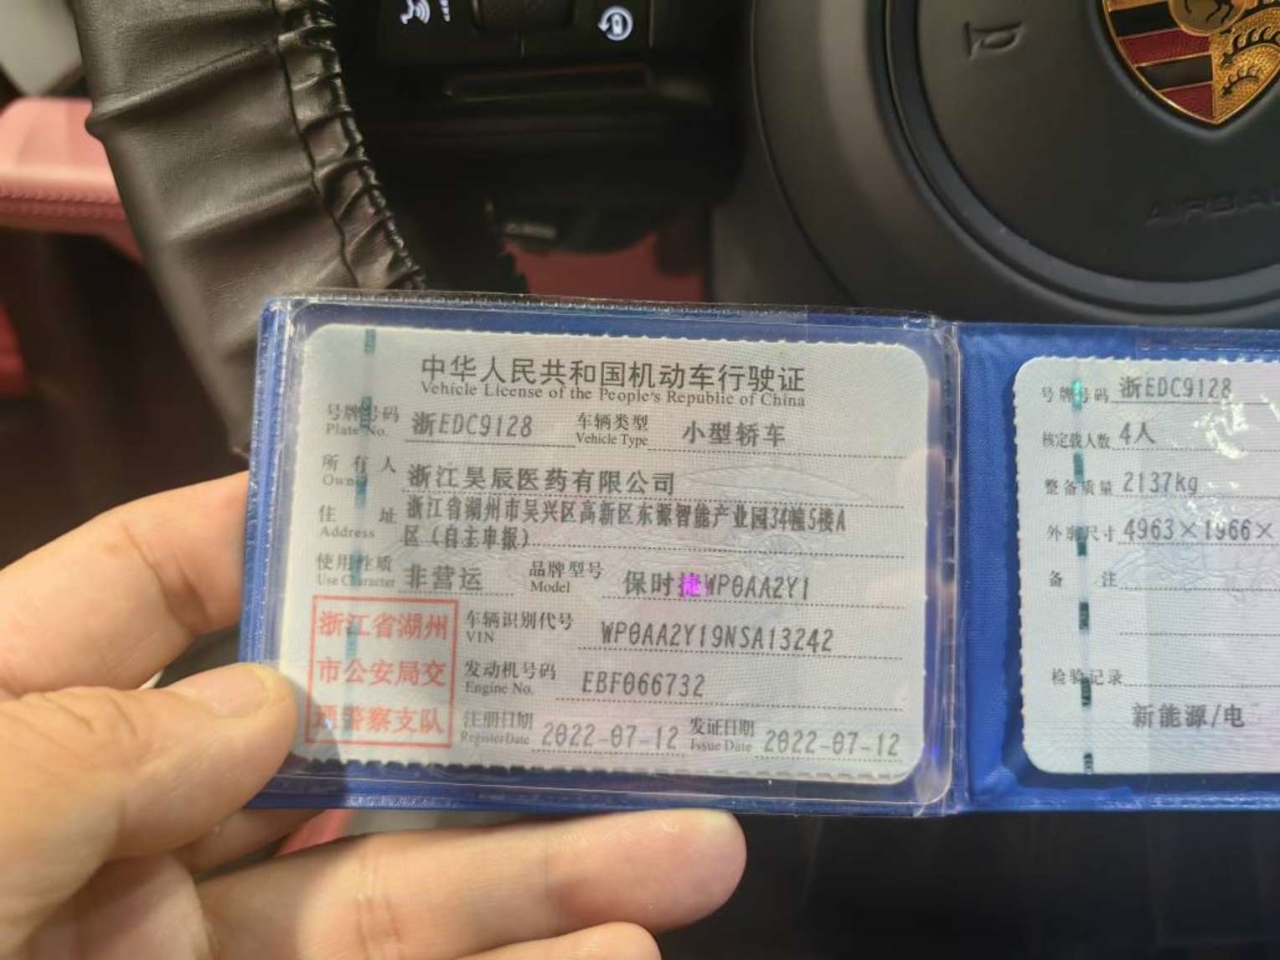 中华人民共和国机动车行驶证
Vehicle License of the People's Republic of China
号牌号码 浙EDC9128 车辆类型 小型轿车
Plate No. Vehicle Type
所有人 浙江昊辰医药有限公司
Owner
住址 浙江省湖州市吴兴区高新区东源智能产业园34幢5楼A
Address 区（自主申报）
使用性质 非营运 品牌型号 保时捷WP0AA2Y1
Use Character Model
浙江省湖州
市公安局交
通警察支队
车辆识别代号 WP0AA2Y19NSA13242
VIN
发动机号码 EBF066732
Engine No.
注册日期 2022-07-12 发证日期 2022-07-12
Register Date Issue Date
号牌号码 浙EDC9128
核定载人数 4人
整备质量 2137kg
外廓尺寸 4963×1966×
备注
检验记录
新能源/电
AIRBAG